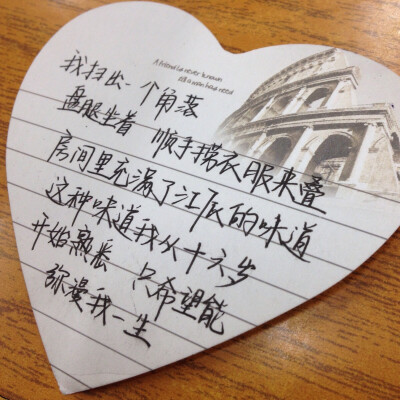 A friend is never known
till a man have need
我扫出一个角落
盘腿坐着 顺手捞衣服来叠
房间里充满了江辰的味道
这种味道我从十六岁
开始熟悉 只希望能
弥漫我一生